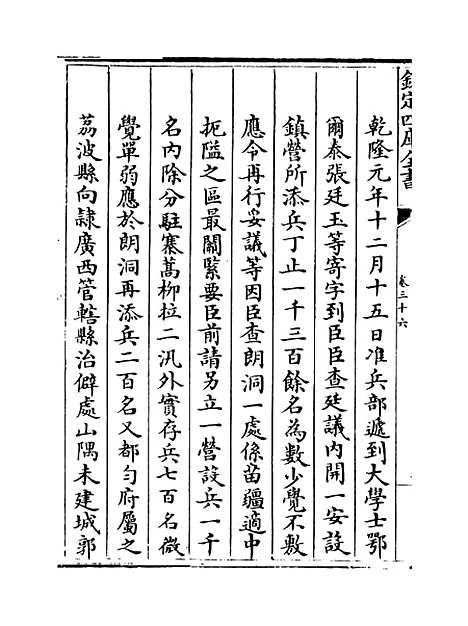 欽定四庫全書
卷三十六
乾隆元年十二月十五日准兵部遞到大學士鄂
爾泰張廷玉等寄字到臣臣查廷議内開一安設
鎮營所添兵丁止一千三百餘名為數少覺不敷
應令再行妥議等因臣查朗洞一處係苗疆適中
扼隘之區最關緊要臣前請另立一營設兵一千
名内除分駐寨蒿柳拉二汛外實存兵七百名微
覺單弱應於朗洞再添兵二百名又都勻府屬之
荔波縣向隸廣西管轄縣治僻處山隅未建城郭